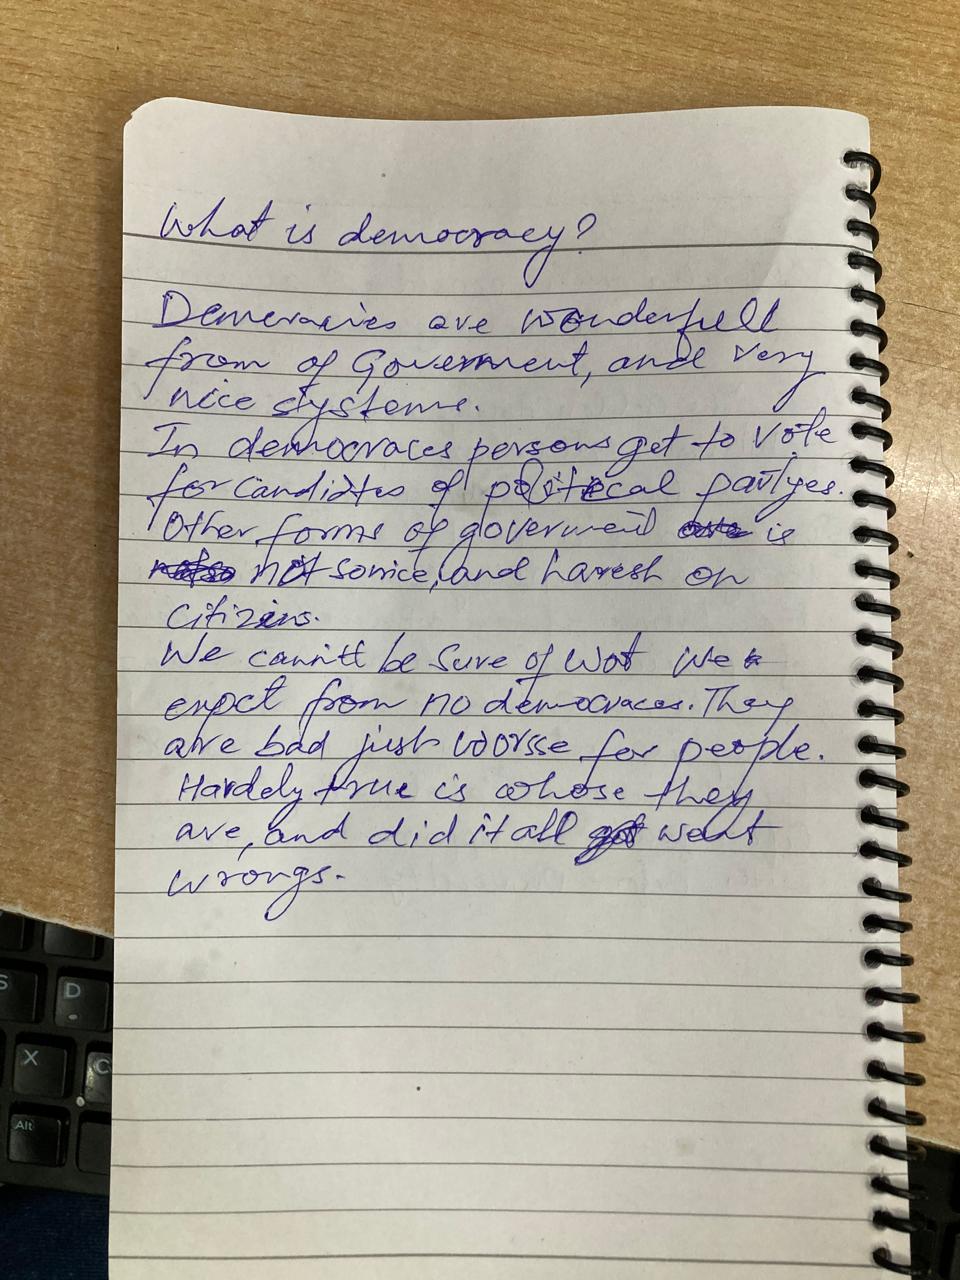 What is democracy?
Demeracies are wonderfull
from of Goverment, and very
nice systeme.
In democraces persons get to vote
for candidtes of political partyes.
Other forms of goverment is
not so nice, and haresh on
citizins.
We cannt be sure of wot we
expct from no democraces. They
are bad just worsse for people.
Hardely true is whose they
are, and did it all went
wrongs.
S
D
X
C
Alt